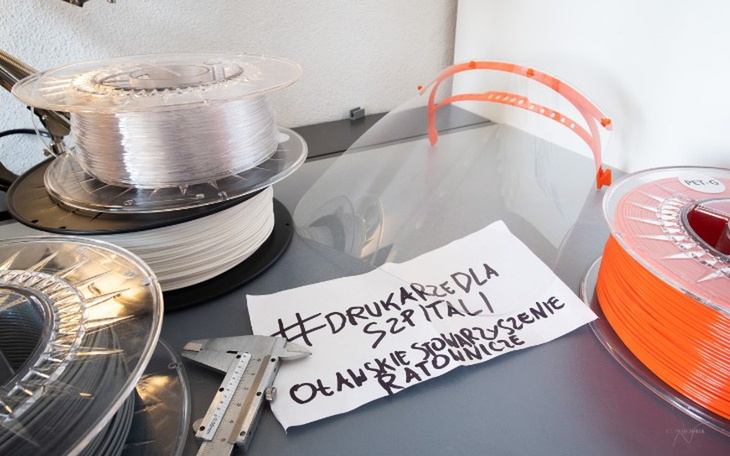 PET-G
#DRUKARZE DLA
SZPITALI
OŁAWSKIE STOWARZYSZENIE
RATOWNICZE